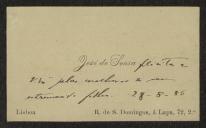 José de Sousa felicita e
pelas melhoras de seu
estremecido filho. 28-5-86
Lisboa
R. de S. Domingos, á Lapa, 72, 2.º